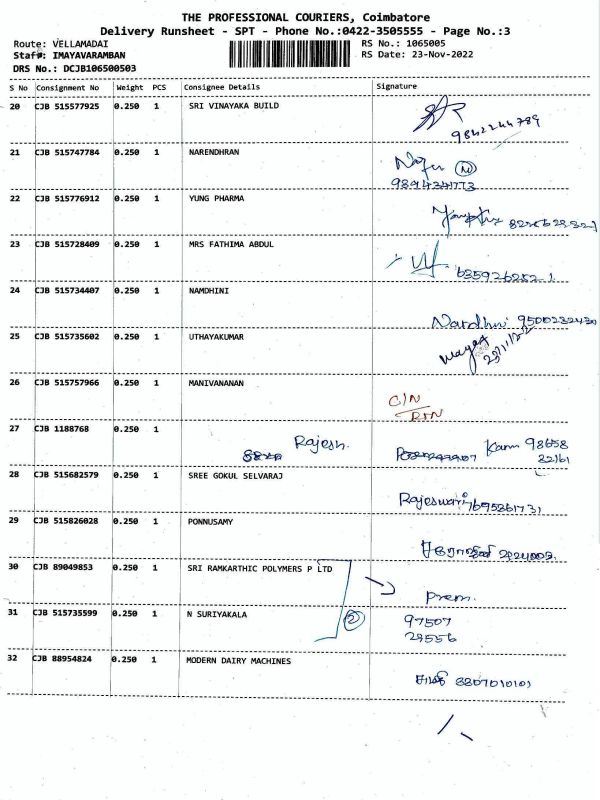 THE PROFESSIONAL COURIERS, Coimbatore
Delivery Runsheet - SPT - Phone No.:0422-3505555 - Page No.:3
Route: VELLAMADAI RS No.: 1065005
Staff#: IMAYAVARAMBAN RS Date: 23-Nov-2022
DRS No.: DCJB106500503
S No Consignment No Weight PCS Consignee Details Signature
20 CJB 515577925 0.250 1 SRI VINAYAKA BUILD
9842244789
21 CJB 515747784 0.250 1 NARENDHRAN
22 CJB 515776912 0.250 1 YUNG PHARMA
23 CJB 515728409 0.250 1 MRS FATHIMA ABDUL
24 CJB 515734407 0.250 1 NAMDHINI
Nardhini 9500232430
25 CJB 515735602 0.250 1 UTHAYAKUMAR
26 CJB 515757966 0.250 1 MANIVANANAN
C/N
RTN
27 CJB 1188768 0.250 1 Rajesh. 98658
22161
28 CJB 515682579 0.250 1 SREE GOKUL SELVARAJ
Rajeswari
29 CJB 515826028 0.250 1 PONNUSAMY
30 CJB 89049853 0.250 1 SRI RAMKARTHIC POLYMERS P LTD
Prem.
31 CJB 515735599 0.250 1 N SURIYAKALA 2 97507
29556
32 CJB 88954824 0.250 1 MODERN DAIRY MACHINES